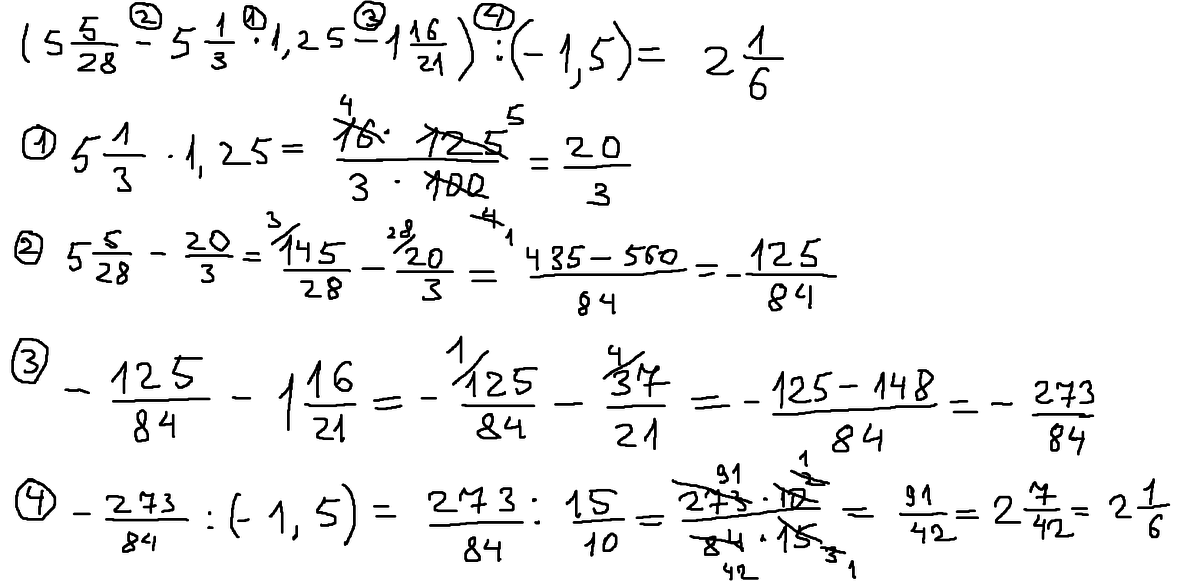 (5 5/28 ② - 5 1/3 ① · 1,25 ③ - 1 16/21) ④ : (-1,5) = 2 1/6
① 5 1/3 · 1,25 = 16 4 · 125 5 / 3 · 100 4 1 = 20/3
② 5 5/28 - 20/3 = 3/ 145/28 - 28/ 20/3 = 435 - 560 / 84 = - 125/84
③ - 125/84 - 1 16/21 = - 1/ 125/84 - 4/ 37/21 = - 125 - 148 / 84 = - 273/84
④ - 273/84 : (-1,5) = 273/84 : 15/10 = 273 91 · 10 2 1 / 84 42 · 15 3 1 = 91/42 = 2 7/42 = 2 1/6